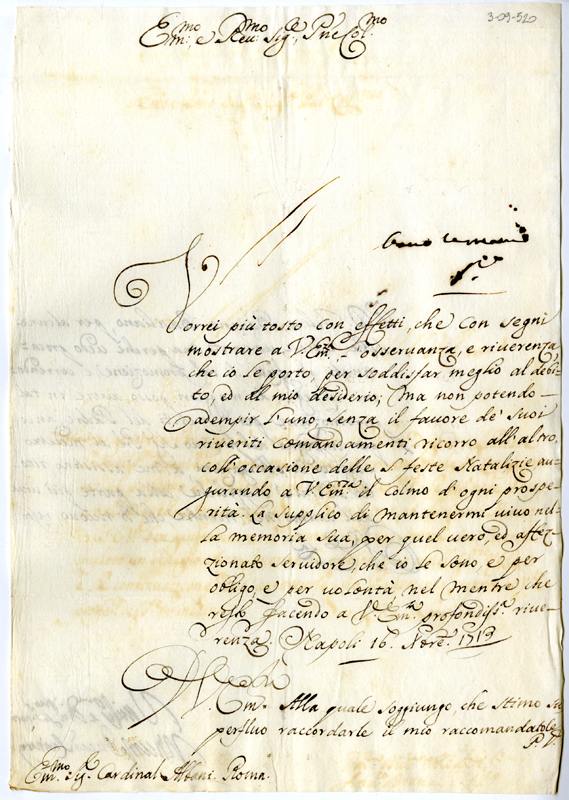 3-09-520
Em:mo, e Reu:mo Sig:re, P.ne Col:mo
Vorrei più tosto con effetti, che con segni
mostrare a V. Em.za l'osseruanza, e riuerenza,
che io le porto, per soddisfar meglio al debi-
to, ed al mio desiderio; Ma non potendo
adempir l'uno senza il fauore de' suoi
riueriti comandamenti ricorro all'altro
coll'occasione delle S. feste Natalizie au-
gurando a V. Em.za il colmo d'ogni prospe-
rità. La supplico di mantenermi uiuo nel-
la memoria sua, per quel uero, ed affez-
zionato seruidore, che io le sono, e per
obligo, e per uolontà, nel mentre che
resto facendo a V. Em.za profondiss.a riue-
renza. Napoli 16. Nbre. 1713
V. Em.za Alla quale soggiungo, che stimo su
perfluo raccordarle il mio raccomandatole
P. V.
Em.mo Sig.r Cardinal Albani. Roma.